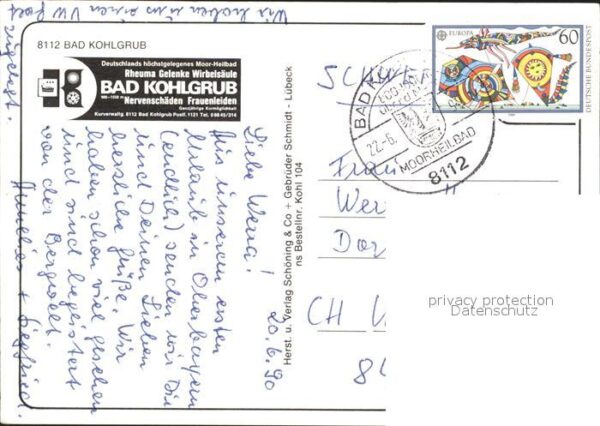 8112 BAD KOHLGRUB
Deutschlands höchstgelegenes Moor-Heilbad
Rheuma Gelenke Wirbelsäule
BAD KOHLGRUB
Nervenschäden Frauenleiden
Ganzjährige Kurmöglichkeit
Kurverwaltg. 8112 Bad Kohlgrub Postf. 1121 Tel. 08845/314
20.6.90
Liebe Wena!
Aus unserem ersten
Urlaub in Oberbayern
(endlich) senden wir Dir
und Deinen Lieben
herzliche Grüße. Wir
haben schon viel gesehen
und sind begeistert
von der Bergwelt.
Annelies + Siegfried.
Wir haben uns einen VW Golf
zugelegt.
Herst. u. Verlag Schöning & Co + Gebrüder Schmidt - Lübeck
ns Bestellnr. Kohl 104
EUROPA
60
DEUTSCHE BUNDESPOST
BAD
22.-6.
MOORHEILBAD
8112
SCHWE
Frau
Wer
Dor
CH
8
privacy protection
Datenschutz